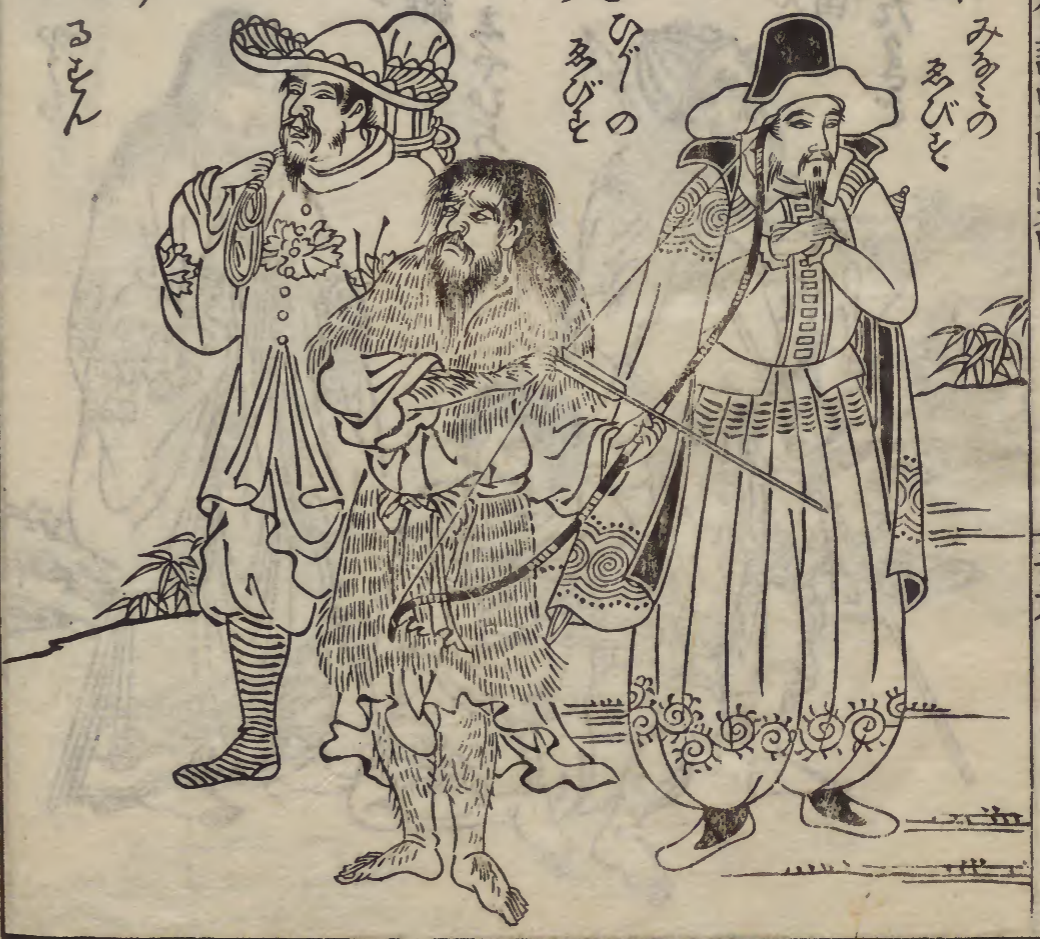 みなみの
ゑびす
ひがしの
ゑびす
るすん